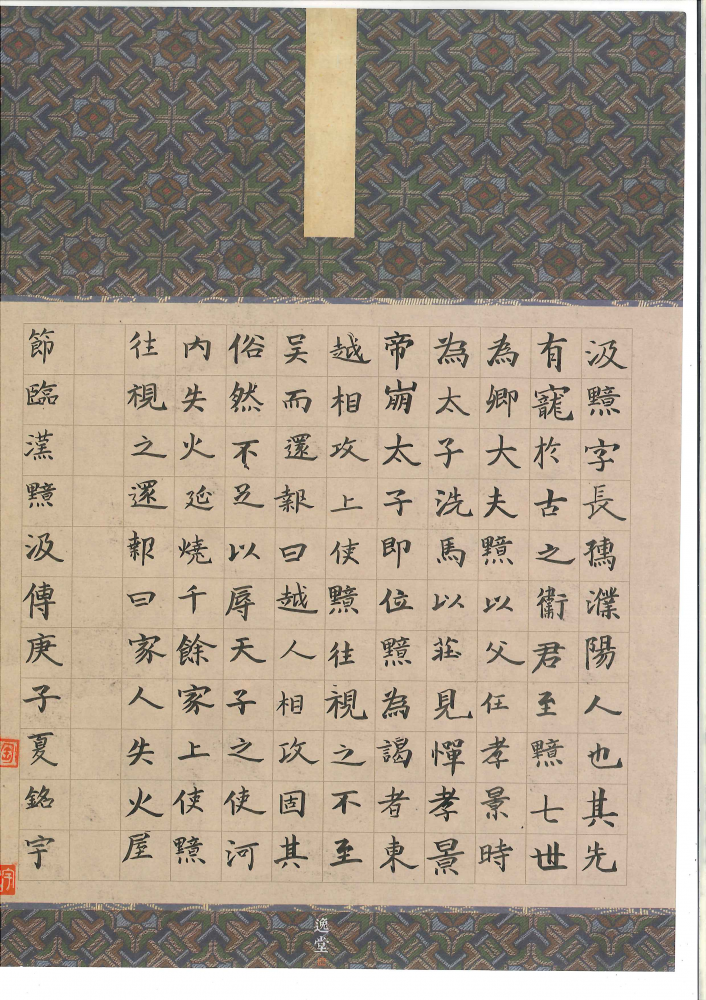 汲黯字長孺濮陽人也其先
有寵於古之衛君至黯七世
為卿大夫黯以父任孝景時
為太子洗馬以莊見憚孝景
帝崩太子即位黯為謁者東
越相攻上使黯往視之不至
吴而還報曰越人相攻固其
俗然不足以辱天子之使河
内失火延燒千餘家上使黯
往視之還報曰家人失火屋
節臨漢黯汲傳庚子夏銘宇
逸堂